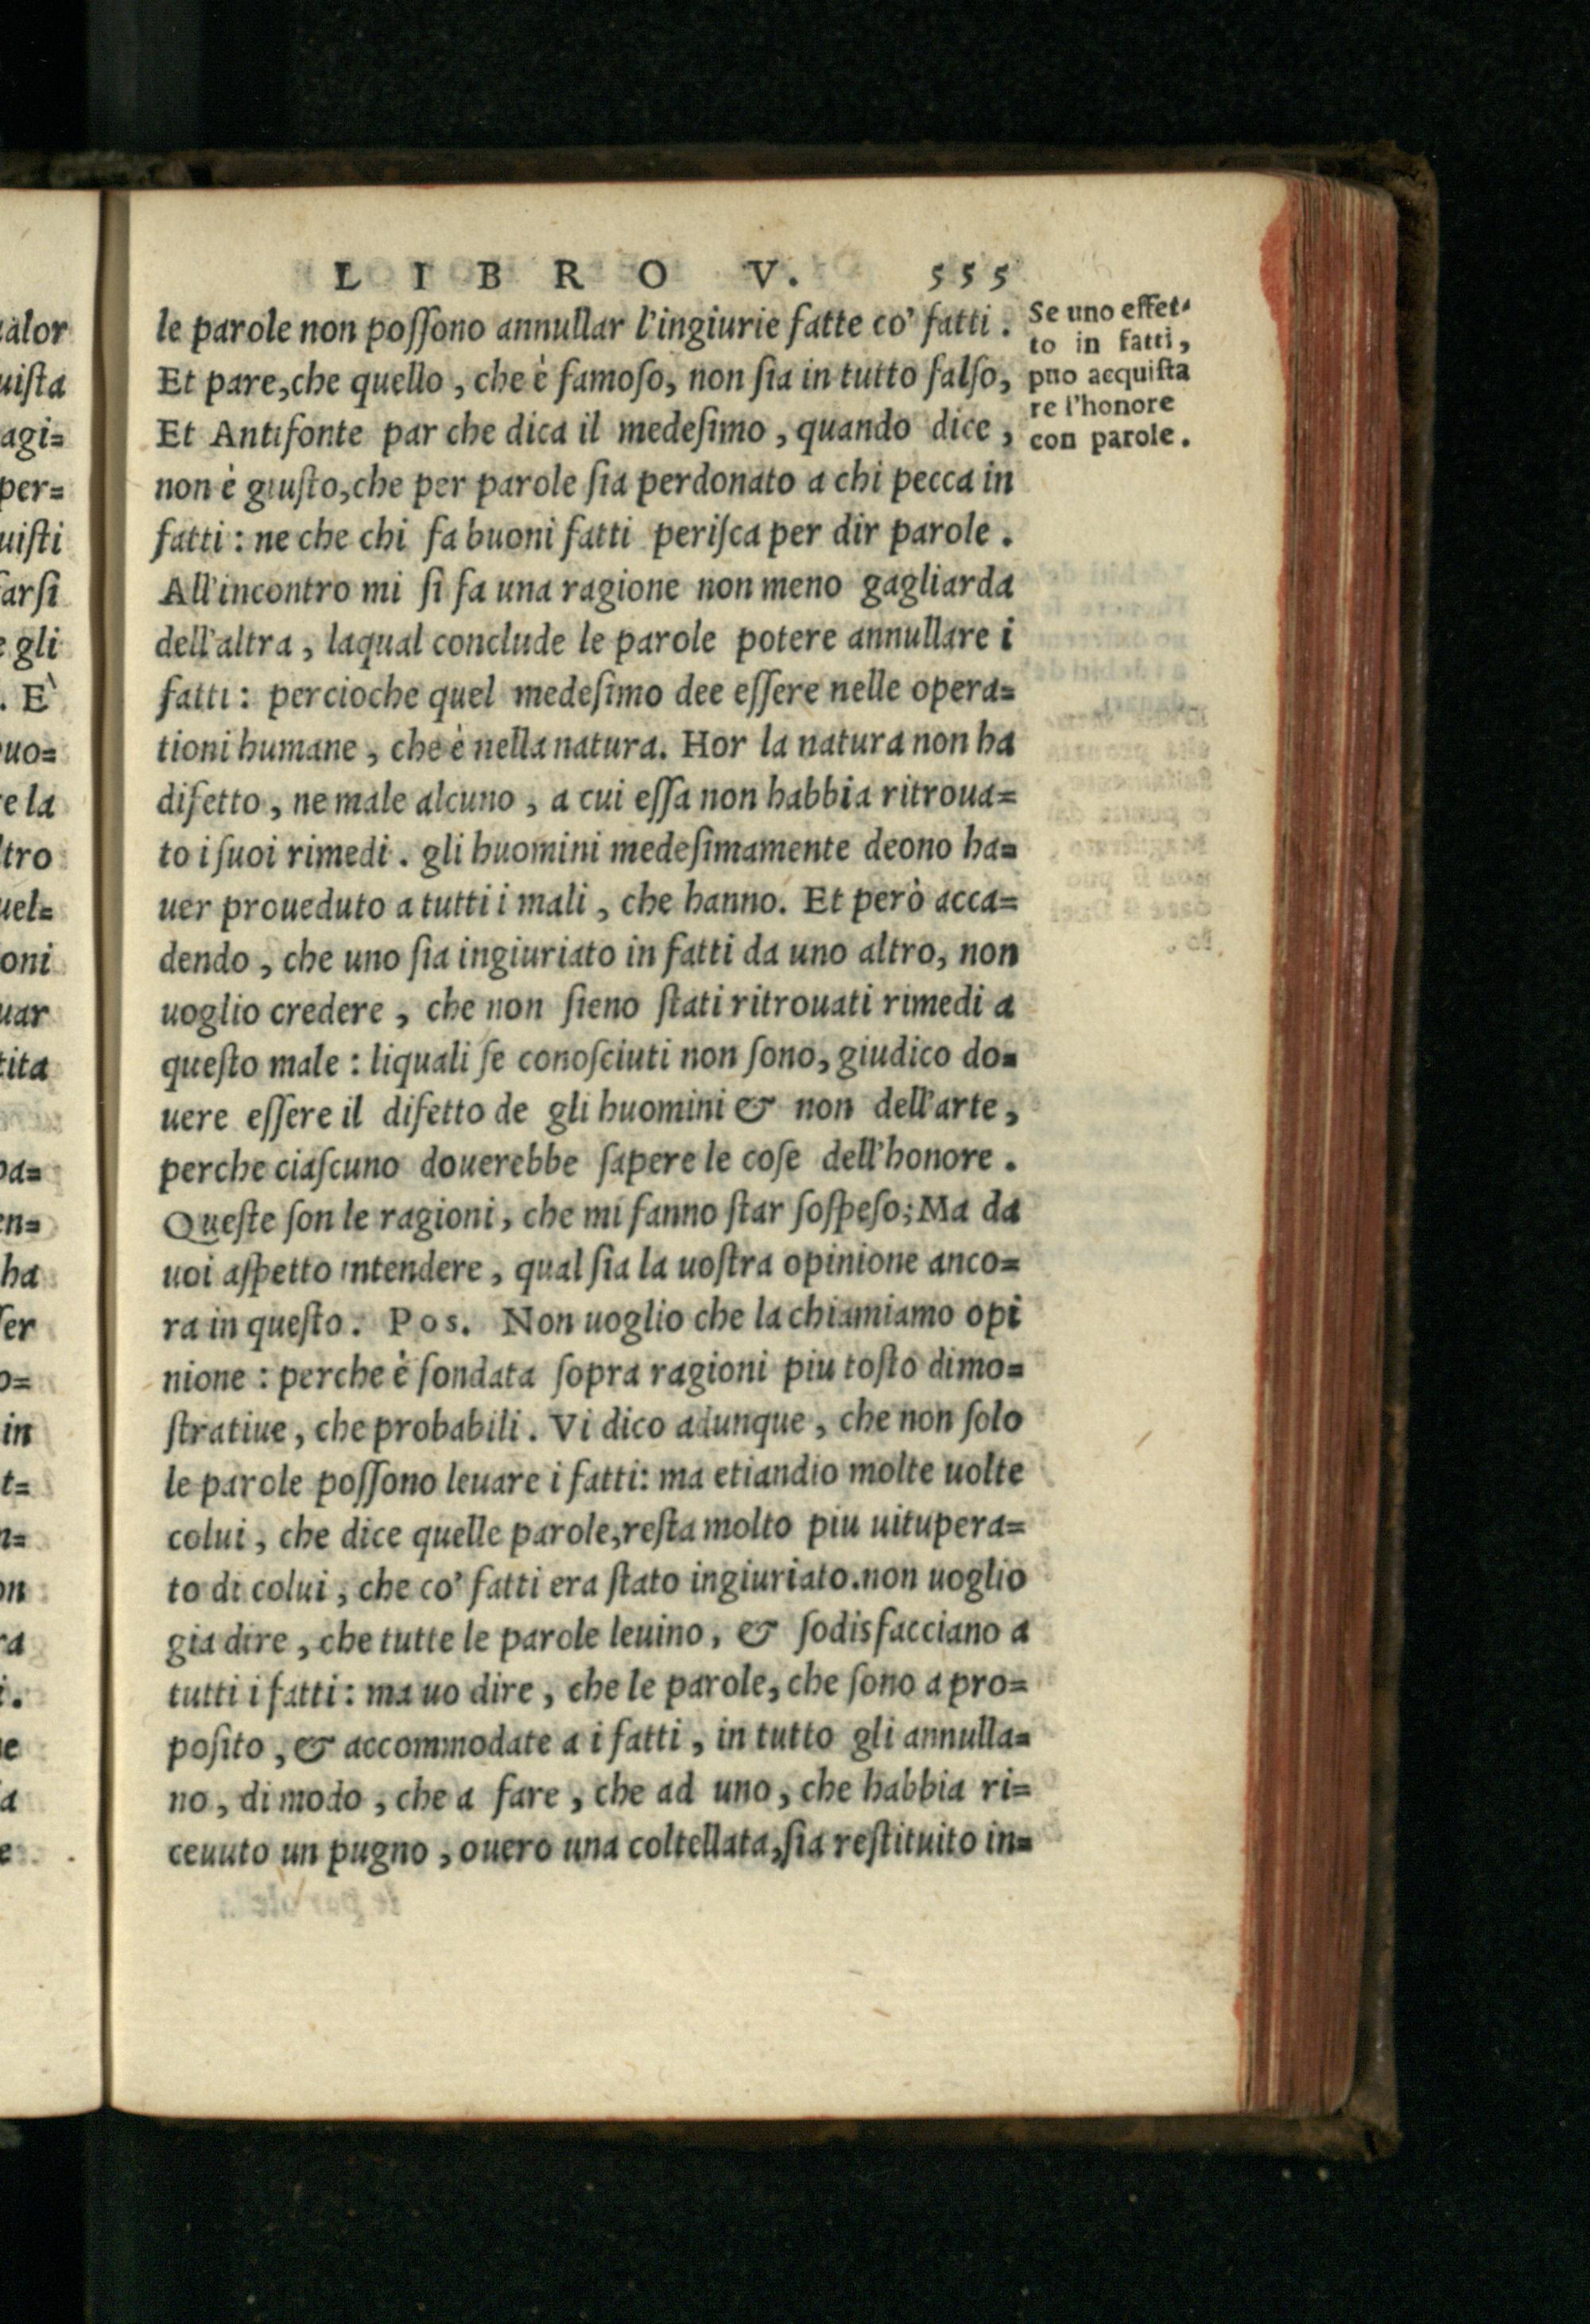 LIBRO V. 555
le parole non poſſono annullar l'ingiurie fatte co' fatti.
Et pare, che quello, che è famoſo, non ſia in tutto falſo,
Et Antifonte par che dica il medeſimo, quando dice,
non è giuſto, che per parole ſia perdonato a chi pecca in
fatti: ne che chi fa buoni fatti periſca per dir parole.
All'incontro mi ſi fa una ragione non meno gagliarda
dell'altra, laqual conclude le parole potere annullare i
fatti: percioche quel medeſimo dee eſſere nelle opera=
tioni humane, che è nella natura. Hor la natura non ha
difetto, ne male alcuno, a cui eſſa non habbia ritroua=
to i ſuoi rimedi. gli huomini medeſimamente deono ha=
uer proueduto a tutti i mali, che hanno. Et però acca=
dendo, che uno ſia ingiuriato in fatti da uno altro, non
uoglio credere, che non ſieno ſtati ritrouati rimedi a
queſto male: liquali ſe conoſciuti non ſono, giudico do=
uere eſſere il difetto de gli huomini & non dell'arte,
perche ciaſcuno douerebbe ſapere le coſe dell'honore.
Queſte ſon le ragioni, che mi fanno ſtar ſoſpeſo; Ma da
uoi aſpetto intendere, qual ſia la uoſtra opinione anco=
ra in queſto. Pos. Non uoglio che la chiamiamo opi
nione: perche è fondata ſopra ragioni piu toſto dimo=
ſtratiue, che probabili. Vi dico adunque, che non ſolo
le parole poſſono leuare i fatti: ma etiandio molte uolte
colui, che dice quelle parole, reſta molto piu uitupera=
to di colui, che co' fatti era ſtato ingiuriato. non uoglio
gia dire, che tutte le parole leuino, & ſodisfacciano a
tutti i fatti: ma uo dire, che le parole, che ſono a pro=
poſito, & accommodate a i fatti, in tutto gli annulla=
no, di modo, che a fare, che ad uno, che habbia ri=
ceuuto un pugno, ouero una coltellata, ſia reſtituito in=
Se uno effet=
to in fatti,
puo acquiſta
re l'honore
con parole.
ualor
uiſta
agi=
per=
uiſti
farſi
e gli
. E`
uo=
re la
ltro
uel=
oni
uar
tita
pa=
en=
ha
ſer
o=
in
t=
n=
on
ra
i.
e
a
e